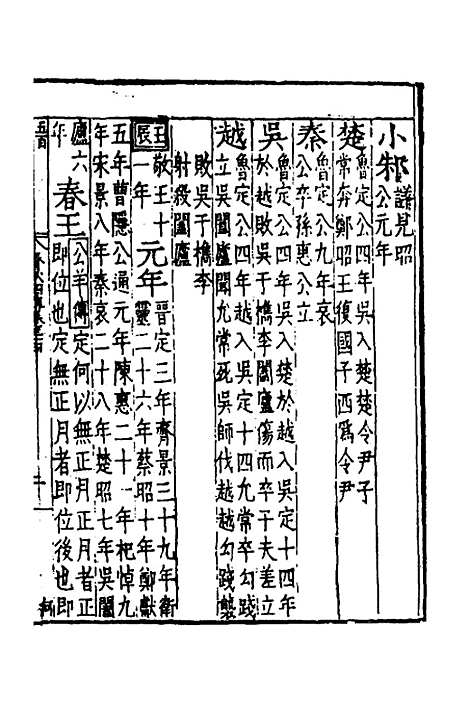 小邾譜見昭
公元年
楚魯定公四年吳入楚楚令尹子
常奔鄭昭王復國子西爲令尹
秦魯定公九年哀
公卒孫惠公立
吳魯定公四年吳入楚於越入吳定十四年
於越敗吳于檇李闔廬傷而卒子夫差立
越魯定公四年越入吳定十四允常卒勾踐
立吳闔廬聞允常死吳師伐越越勾踐襲
敗吳于檇李
射殺闔廬
壬辰敬王十
一年元年晉定三年齊景三十九年衛
靈二十六年蔡昭十年鄭獻
五年曹隱公通元年陳惠二十一年杞悼九
年宋景八年秦哀二十八年楚昭七年吳闔
廬六
年春王公羊傳定何以無正月正月者正
即位也定無正月者即位後也即